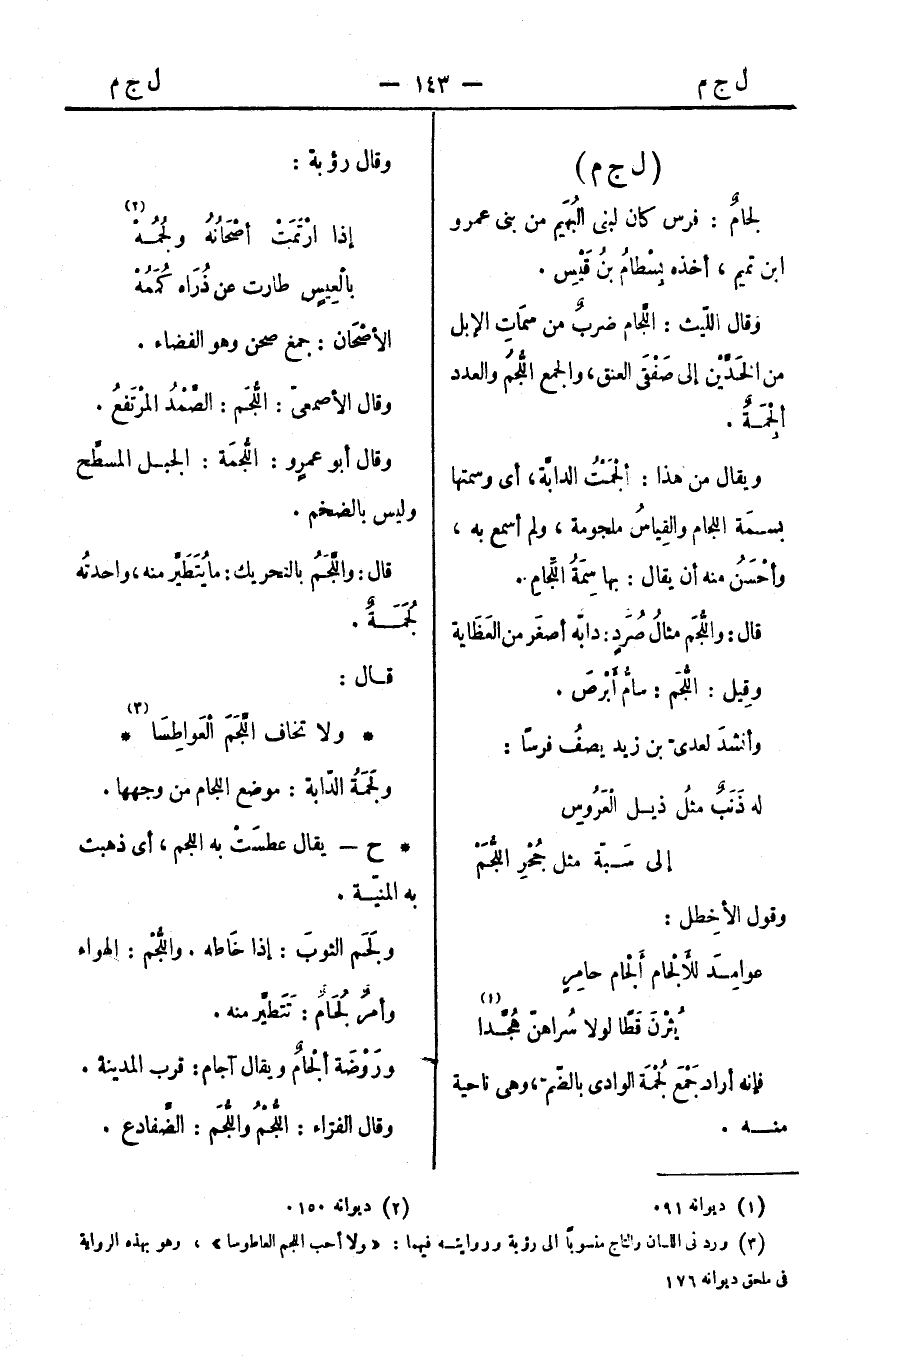 ل ج م — ١٤٣ — ل ج م
(ل ج م)
لجامٌ : فرس كان لبنى الهُجَيم من بنى عمرو
ابن تميم ، أخذه بِسْطامُ بنُ قَيْسٍ .
وقال اللّيث : اللِّجام ضربٌ من سِمَاتِ الإبل
من الخَدَّيْن إلى صَفْقَى العنق، والجمع اللُّجُمُ والعدد
ألْجِمَـةٌ .
ويقال من هذا : ألْجَمْتُ الدابَّة، أى وسمتها
بسـمَة اللجام والقِياسُ ملجومة ، ولم أسمع به ،
وأحْسَنُ منه أن يقال : بها سِمَةُ اللِّجامِ .
قال : واللُّجَم مثالُ صُرَدٍ : دابّه أصغَر من العَظَاية
وقِيل : اللُّجَم : سامُّ أَبْرَصَ .
وأنشدَ لعدىّ بن زيد يصفُ فرسًا :
له ذَنَبٌ مثلُ ذيـل الْعَرُوسِ
إلى سَـبّة مثل جُحْرِ اللُّجَمْ
وقول الأخطل :
عوامِـدَ للأَلْجام أَلْجام حامِرٍ
يُثرْنَ قَطًا لولا سُراهنّ هُجَّـدا (١)
فإنه أراد جَمْعَ لُجْمَة الوادى بالضّمّ ، وهى ناحية
منـــه .
وقال رؤبة :
إذا ارْتَمَتْ أصْحَانُهُ ولُجَمُـهْ (٢)
بالْعِيسِ طارت عن ذُرَاه كُمَمُهْ
الأصْحَان : جمع صحن وهو الفضاء .
وقال الأصمعىّ : اللُّجَم : الصَّمْدُ المرْتَفعُ .
وقال أبو عمرٍو : اللُّجمَة : الجبـل المسطَّح
وليس بالضخم .
قال : واللَّجَمُ بالتحريك : ما يُتَطَيَّر منه ، واحدتُه
لُجَمَـــةٌ .
قـال :
* ولا تخاف اللَّجَمَ الْعَواطِسَا * (٣)
ولَجَمَةُ الدّابة : موضع اللجام من وجهها .
* ح — يقال عطسَتْ به اللجم ، أى ذهبت
به المنيّـة .
ولَجَم الثوبَ : إذا خَاطه . واللُّجْم : الهواء
وأمرٌ لُجَامٌ : تَتَطيَّر منه .
ورَوْضَة ألْجامٌ ويقال آجام : قرب المدينة .
وقال الفرّاء : اللُّجْمُ واللُّجَم : الضَّفادع .
(١) ديوانه ٩١ .
(٢) ديوانه ١٥٠ .
(٣) ورد فى اللسان والتاج منسوبًا الى رؤبة وروايتـه فيهما : «ولا أحب اللجم العاطوسا» ، وهو بهذه الرواية
فى ملحق ديوانه ١٧٦